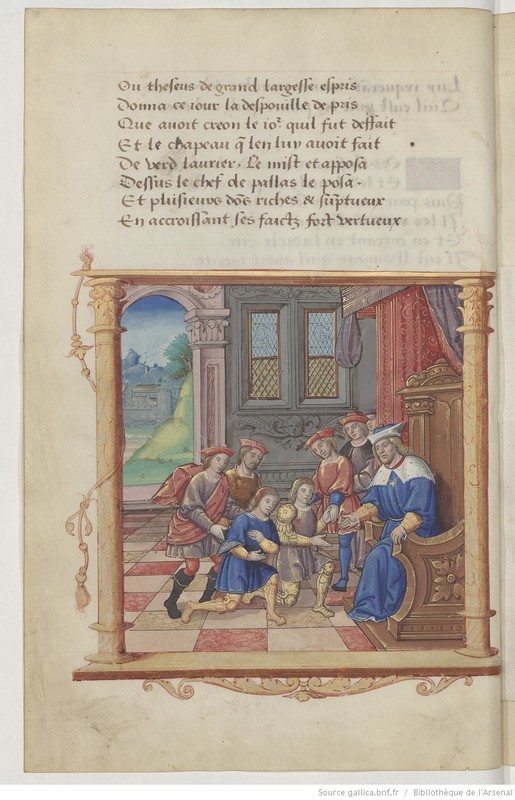 Ou theseus de grand largesse espris
Donna ce iour la despouille de pris
Que avoit creon le ioʳ quil fut deffait
Et le chapeau q̄ len luy avoit fait
De verd laurier. Le mist et apposa
Dessus le chef de pallas le posa.
Et plusieurs dōs riches & sūptueux
En accroissant ses faictz fort vertueux
Source gallica.bnf.fr / Bibliothèque de l'Arsenal